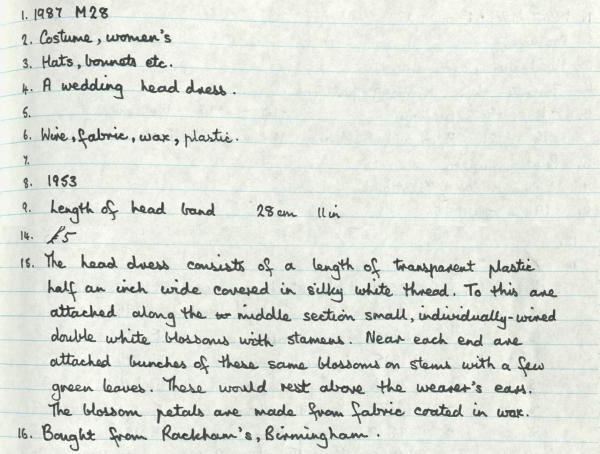 1. 1987 M28
2. Costume, women's
3. Hats, bonnets etc.
4. A wedding head dress.
5.
6. Wire, fabric, wax, plastic.
7.
8. 1953
9. Length of head band 28cm 11in
14. £5
15. The head dress consists of a length of transparent plastic
half an inch wide covered in silky white thread. To this are
attached along the middle section small, individually-wired
double white blossoms with stamens. Near each end are
attached bunches of these same blossoms on stems with a few
green leaves. These would rest above the wearer's ears.
The blossom petals are made from fabric coated in wax.
16. Bought from Rackham's, Birmingham.